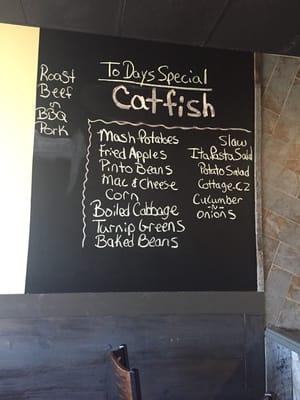 Roast
Beef
or
BBQ
Pork
To Days Special
Catfish
Mash Potatoes
Fried Apples
Pinto Beans
Mac & Cheese
Corn
Boiled Cabbage
Turnip Greens
Baked Beans
Slaw
Ita Pasta Salad
Potato Salad
Cottage-CZ
Cucumber
-N-
onions